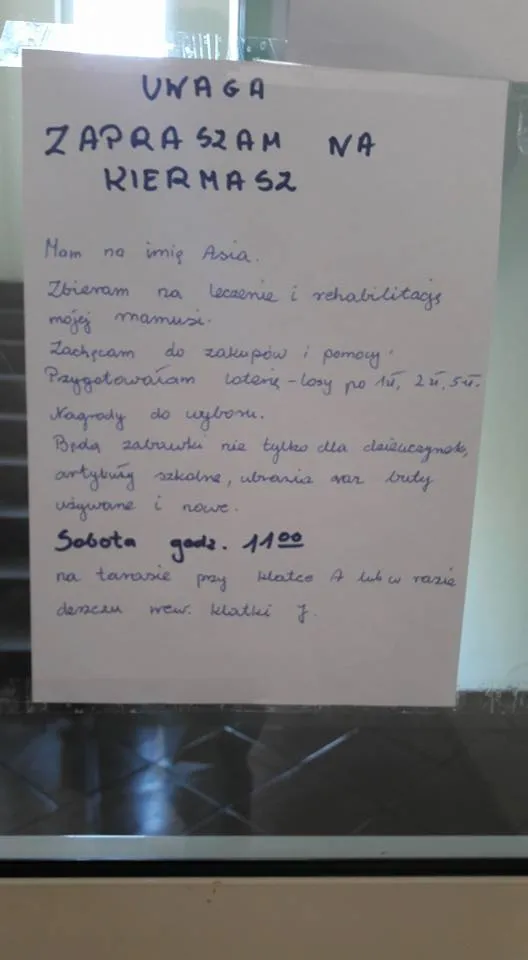 UWAGA
ZAPRASZAM NA
KIERMASZ
Mam na imię Asia.
Zbieram na leczenie i rehabilitację
mojej mamusi.
Zachęcam do zakupów i pomocy.
Przygotowałam loterię - losy po 1 zł, 2 zł, 5 zł.
Nagrody do wyboru.
Będą zabawki nie tylko dla dziewczynek,
artykuły szkolne, ubrania oraz buty
używane i nowe.
Sobota godz. 11 00
na tarasie przy klatce A lub w razie
deszczu wew. klatki J.